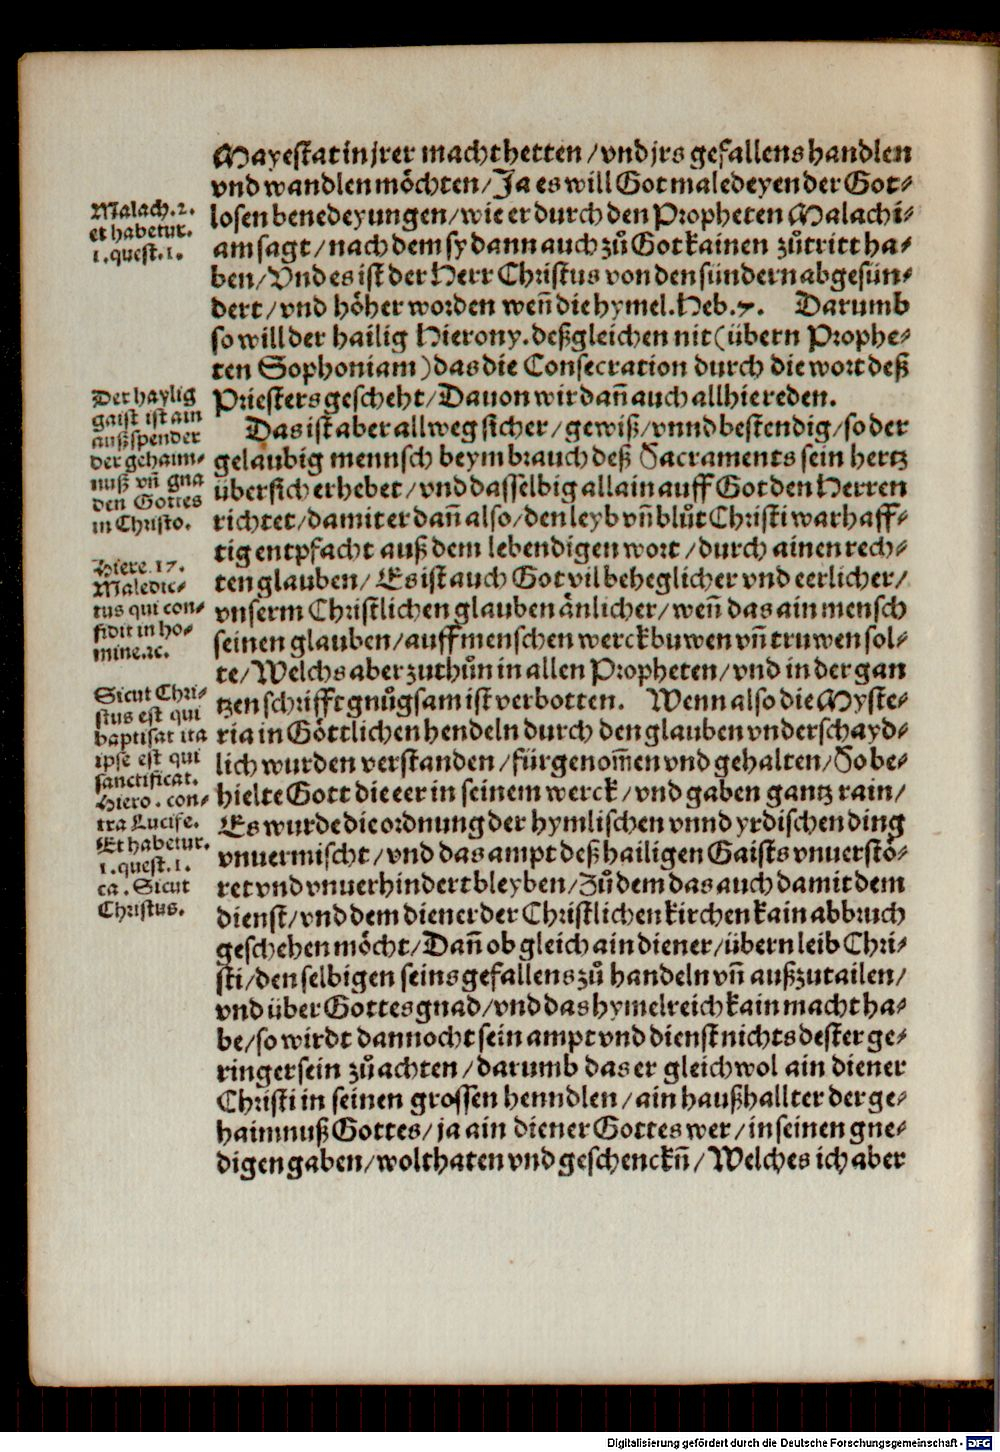 Mayestat in jrer macht hetten / vnd jrs gefallens handlen
vnd wandlen möchten / Ja es will Got maledeyen der Got⸗
losen benedeyungen / wie er durch den Propheten Malachi⸗
am sagt / nach dem sy dann auch zů Got kainen zůtritt ha⸗
ben / Vnd es ist der Herr Christus von den sündern abgesün⸗
dert / vnd höher worden weñ die hymel. Heb. 7. Darumb
so will der hailig Hierony. deßgleichen nit (übern Prophe⸗
ten Sophoniam) das die Consecration durch die wort deß
Priesters gescheht / Dauon wir dañ auch allhie reden.
Das ist aber allweg sicher / gewiß / vnnd bestendig / so der
gelaubig mennsch beym brauch deß Sacraments sein hertz
übersich erhebet / vnd dasselbig allain auff Got den Herren
richtet / damit er dañ also / den leyb vñ blůt Christi warhaff⸗
tig entpfacht auß dem lebendigen wort / durch ainen rech⸗
ten glauben / Es ist auch Got vil beheglicher vnd eerlicher /
vnserm Christlichen glauben änlicher / weñ das ain mensch
seinen glauben / auff menschen werck buwen vñ truwen sol⸗
te / Welchs aber zuthůn in allen Propheten / vnd in der gan
tzen schrifft gnůgsam ist verbotten. Wenn also die Myste⸗
ria in Göttlichen hendeln durch den glauben vnderschayd⸗
lich wurden verstanden / fürgenom̃en vnd gehalten / So be⸗
hielte Gott die eer in seinem werck / vnd gaben gantz rain /
Es wurde die ordnung der hymlischen vnnd yrdischen ding
vnuermischt / vnd das ampt deß hailigen Gaists vnuerstö⸗
ret vnd vnuerhindert bleyben / Zů dem das auch damit dem
dienst / vnd dem diener der Christlichen kirchen kain abbruch
geschehen möcht / Dañ ob gleich ain diener / übern leib Chri⸗
sti / den selbigen seins gefallens zů handeln vñ außzutailen /
vnd über Gottes gnad / vnd das hymelreich kain macht ha⸗
be / so wirdt dannocht sein ampt vnd dienst nichts dester ge⸗
ringer sein zů achten / darumb das er gleichwol ain diener
Christi in seinen grossen henndlen / ain haußhallter der ge⸗
haimnuß Gottes / ja ain diener Gottes wer / in seinen gne⸗
digen gaben / wolthaten vnd geschenckñ / Welches ich aber
Malach. 2.
et habetur.
1. quest. 1.
Der haylig
gaist ist ain
außspender
der gehaim⸗
nuß vñ gna
den Gottes
in Christo.
Hiere. 17.
Maledic⸗
tus qui con⸗
fidit in ho⸗
mine. ꝛc.
Sicut Chri⸗
stus est qui
baptisat ita
ipse est qui
sanctificat.
Hiero. con⸗
tra Lucife.
Et habetur.
1. quest. 1.
ca. Sicut
Christus.
Digitalisierung gefördert durch die Deutsche Forschungsgemeinschaft - DFG